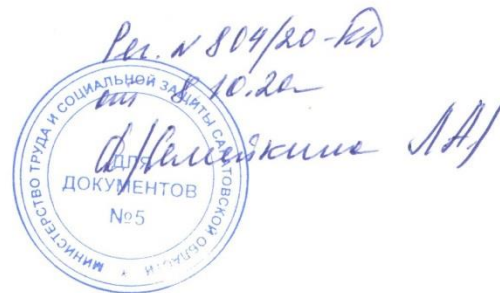 Рег. № 804/20-КД
от 8.10.20
МИНИСТЕРСТВО ТРУДА И СОЦИАЛЬНОЙ ЗАЩИТЫ САРАТОВСКОЙ ОБЛАСТИ
ДЛЯ
ДОКУМЕНТОВ
№5